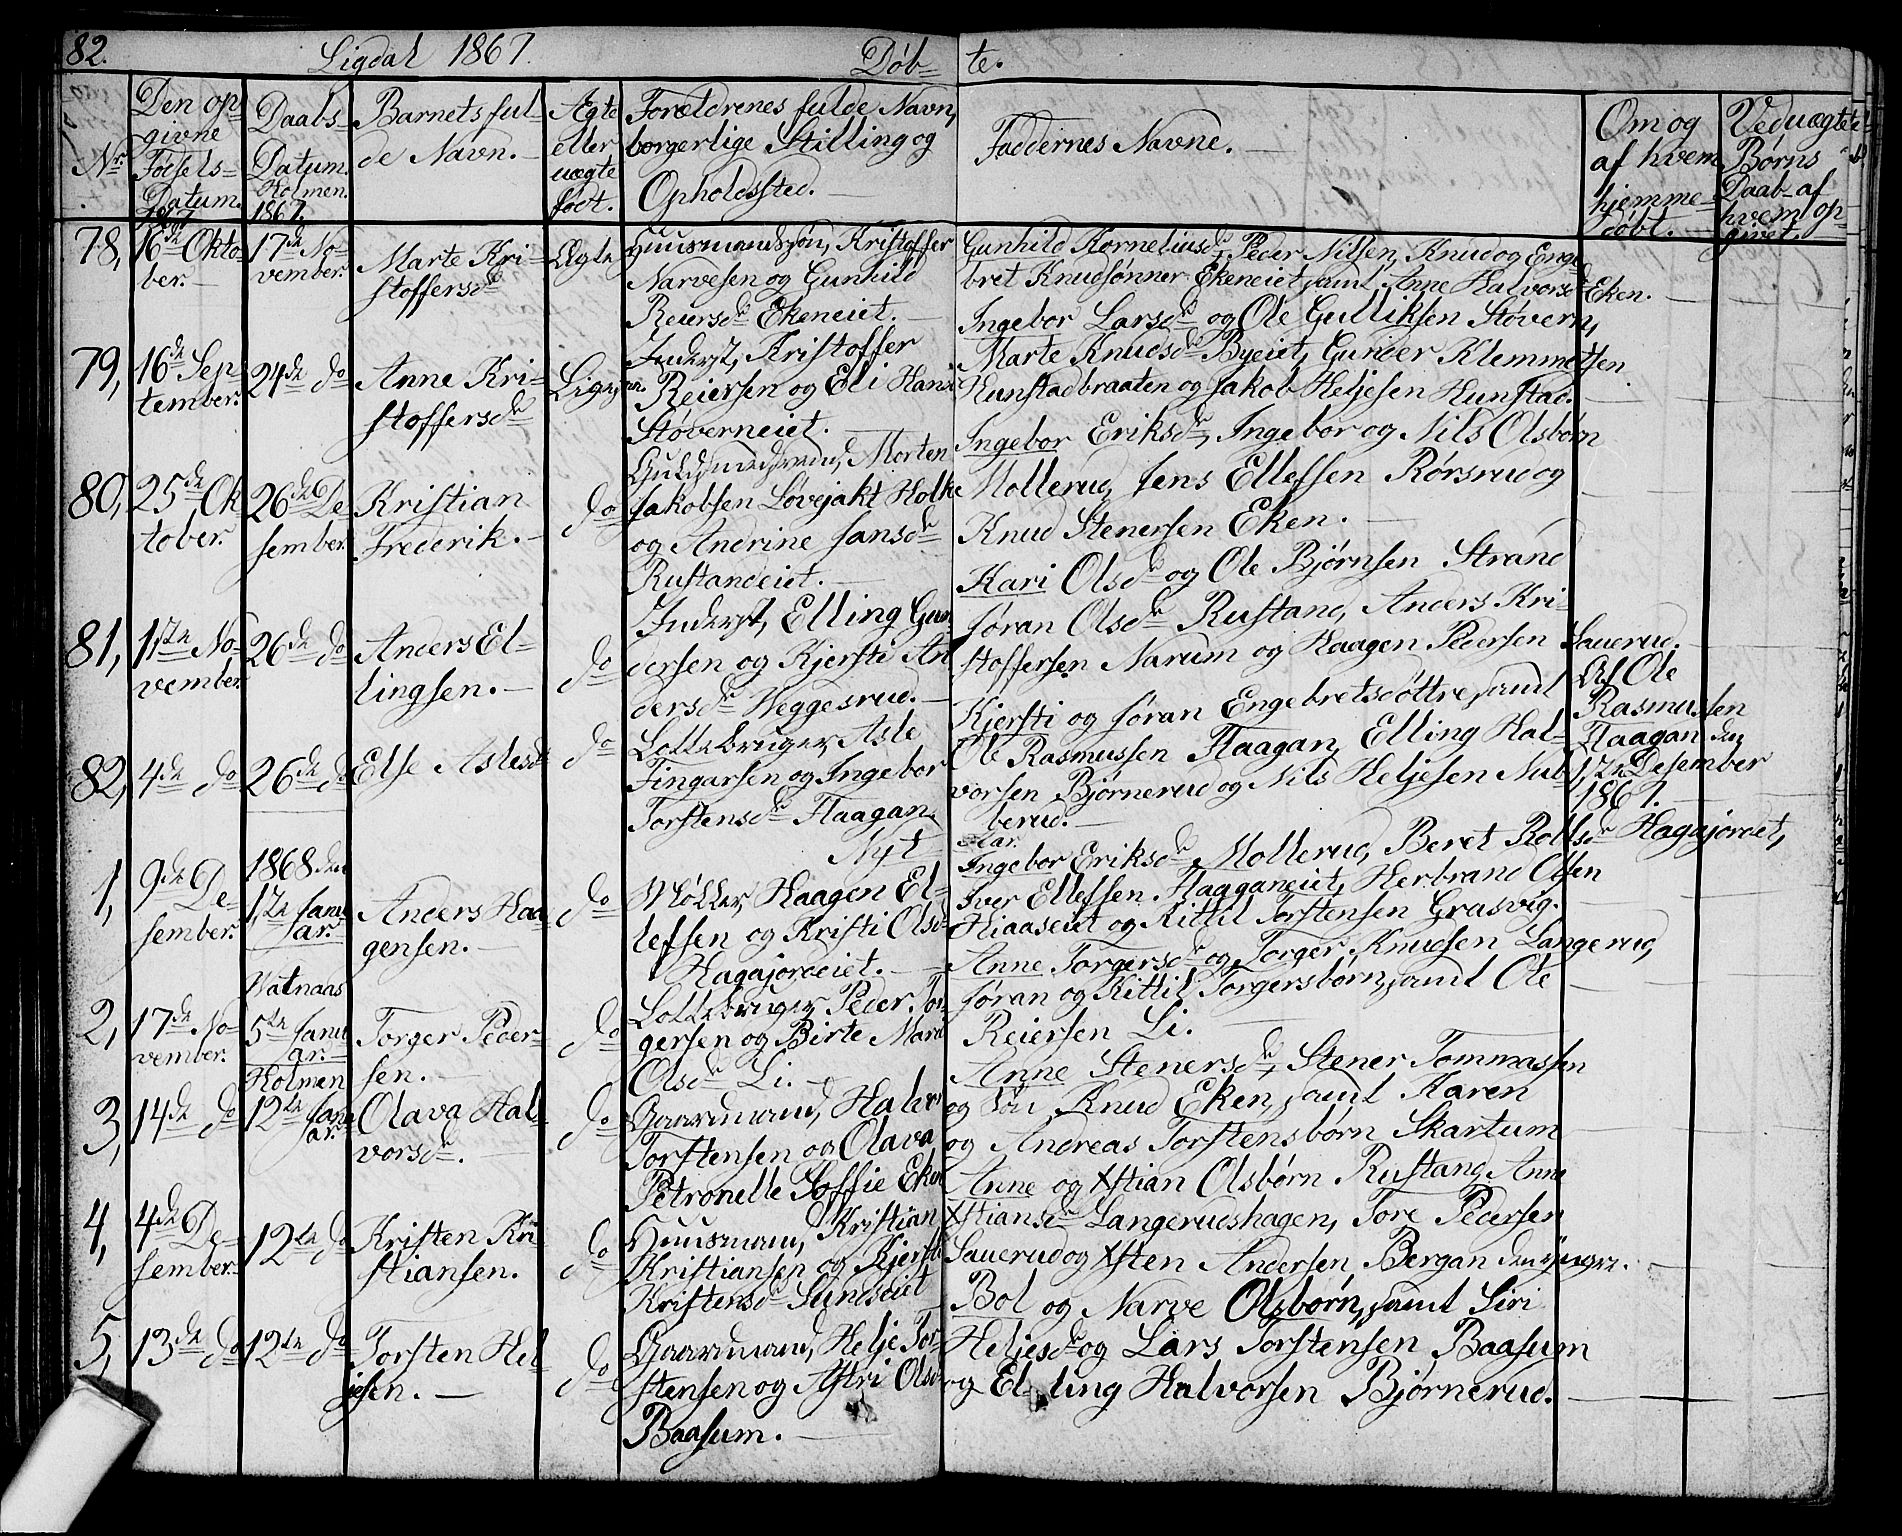 82. Ligdal 1867. Døb= te.
Nr.
Den op-
givne
Fødsels=
Datum.
1867
Daabs-
Datum.
Holmen.
1867.
Barnets ful-
de Navn.
Ægte
eller
uægte
født.
Forældrenes fulde Navn,
borgerlige Stilling og
Opholdssted.
Faddernes Navne.
Om og
af hvem
hjemme-
døbt.
Ved uægte
Børns
Daab af
hvem op-
givet.
78,
16de Okto-
ber.
17de No-
vember.
Marte Kri-
stoffersdr
Ægte
Huusmandssøn, Kristoffer
Narvesen og Gunhild
Reiersdr Ekeneiet.
Gunhild Korneliusdr, Peder Nilsen, Knud og Enge-
bret Knudsønner Ekeneiet, samt Anne Halvorsdr Eken.
79,
16de Sep-
tember.
24de do
Anne Kri-
stoffersdr
Ligesaa.
Inderst, Kristoffer
Reiersen og Eli Hansdr
Støverneiet.
Ingebor Larsdr og Ole Gulliksen Støvern,
Marte Knudsdr Byeiet, Gunder Klemmetsen
Hunstadbraaten og Jakob Heljesen Hunstad.
80,
25de Ok
tober.
26de De
sember.
Kristian
Frederik.
do
Guldsmedsvend, Morten
Jakobsen Løvejakt Holke
og Andrine Jansdr
Rustandeiet.
Ingebor Eriksdr, Ingebor og Nils Olsbørn
Mollerud, Jens Ellefsen Rørsrud og
Knud Stenersen Eken.
81,
1ste No-
vember.
26de do
Anders El-
lingsen.
do
Inderst, Elling Gun
dersen og Kjersti An
dersdr Heggesrud.
Kari Olsdr og Ole Bjørnsen Strand
Jøran Olsdr Rustand, Anders Kri-
stoffersen Narum og Haagen Pedersen Sauerud.
82,
4de do
26de do
Else Aslesdr
do
Lottebruger, Asle
Fingarsen og Ingebor
Torstensdr Flaagan.
Kjersti og Jøran Engebretsdøttre, samt
Ole Rasmussen Flaagan, Elling Hal-
vorsen Bjørnerud og Nils Heljesen Nub-
berud.
Af Ole
Rasmussen
Flaagan den
12te Desember
1867.
Nyt Aar.
1,
9de De-
sember.
1868 den
1ste Janu
ar.
Anders Haa
gensen.
do
Møller, Haagen El-
lefsen og Kristi Olsdr
Hagajordeiet.
Ingebor Eriksdr Mollerud, Beret Rollsdr Hagajordet,
Iver Ellefsen Flagganeiet, Herbrand Olsen
Hiaaseiet og Kittil Torstensen Grasvig.
2,
17de No-
vember.
Vatnaas
5te Janu
ar.
Torger Peder-
sen.
do
Lottebruger, Peder Tor
gersen og Birte Marie
Olsdr Li.
Anne Torgersdr og Torger Knudsen Langerud,
Jøran og Kittil Torgersbørn, samt Ole
Reiersen Li.
3,
14de do
Holmen
12te Janu
ar.
Olava Hal-
vorsdr.
do
Gaardmand, Halvor
Torstensen og Olava
Petronelle Soffie Eken
Anne Stenersdr, Stener Tommassen
og Søn Knud Eken, samt Karen
og Andreas Torstensbørn Skartum
4,
4de De-
sember.
12te do
Kristen Kri
stiansen.
do
Huusmand, Kristian
Kristiansen og Kjersti
Kristensdr Sundseiet
Anne og Xstian Olsbørn Rustand, Anne
Xstiansdr Langerudshagen, Tore Pedersen
Sauerud og Xsten Andersen Bergan den yngre.
5,
13de do
12te do
Torsten Hel-
jesen.
do
Gaardmand, Helje Tor-
stensen og Astri Olsdr
Baasum.
Bol og Narve Olsbørn, samt Siri
Heljesdr og Lars Torstensen Baasum
og Elling Halvorsen Bjørnerud.